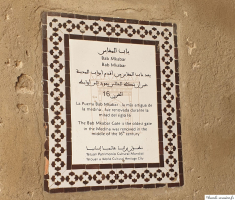 باب المقابر
Bab Mkabar
Bab Mkabar
يعد باب المقابر من أقدم أبواب المدينة
القرن 16
La Puerta Bab Mkabar, la más antigua de
la medina, fue renovada durante la
mitad del siglo
The Bab Mkabar Gate is the oldest gate
in the Medina was restored in the
middle of the 16th century
تطوان تراث عالمي إنساني
Tetuán Patrimonio Cultural Mundial
Tetouan a World Cultural Heritage City